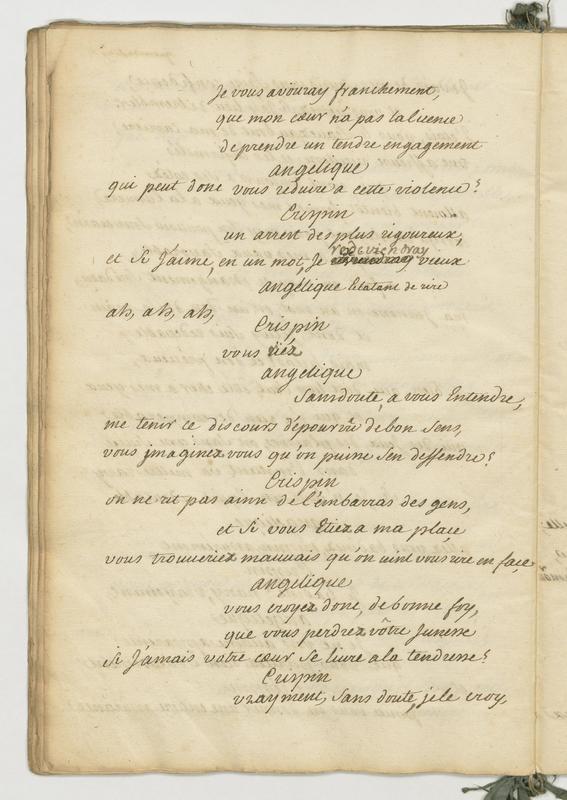 Je vous avouray franchement,
que mon cœur n'a pas la licence
de prendre un tendre engagement
angelique
qui peut donc vous reduire a cette violence?
Crispin
un arrest des plus rigoureux,
et Si J'aime, en un mot, Je redeviendray vieux
angélique Eclatant de rire
ah, ah, ah,
Crispin
vous riéz
angelique
Sans doute, a vous Entendre,
me tenir ce discours dépourvû de bon Sens,
vous jmaginez vous qu'on puisse S'en deffendre?
Crispin
on ne rit pas ainsi de l'embarras des gens,
et Si vous Etiez a ma place
vous trouveriez mauvais qu'on vint vous rire en face
angelique
vous croyez donc, de bonne foy,
que vous perdrez vôtre Junesse
Si J'amais votre cœur Se livre a la tendresse?
Crispin
vrayment, Sans doute, je le croy,